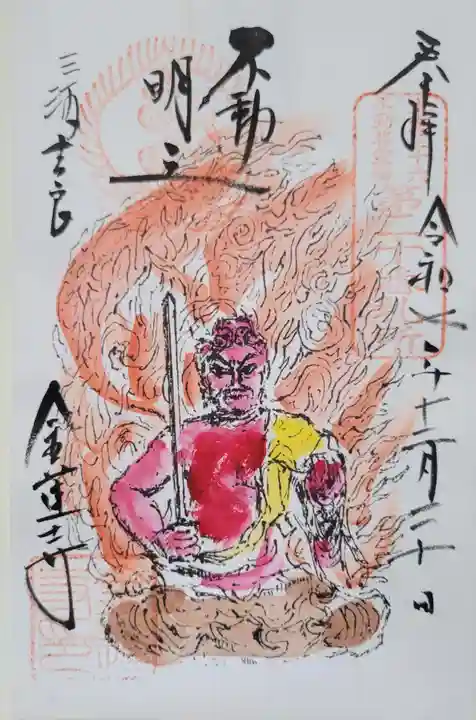 奉拝 令和七年十一月二十日
不動
明王
三河吉良
金蓮寺